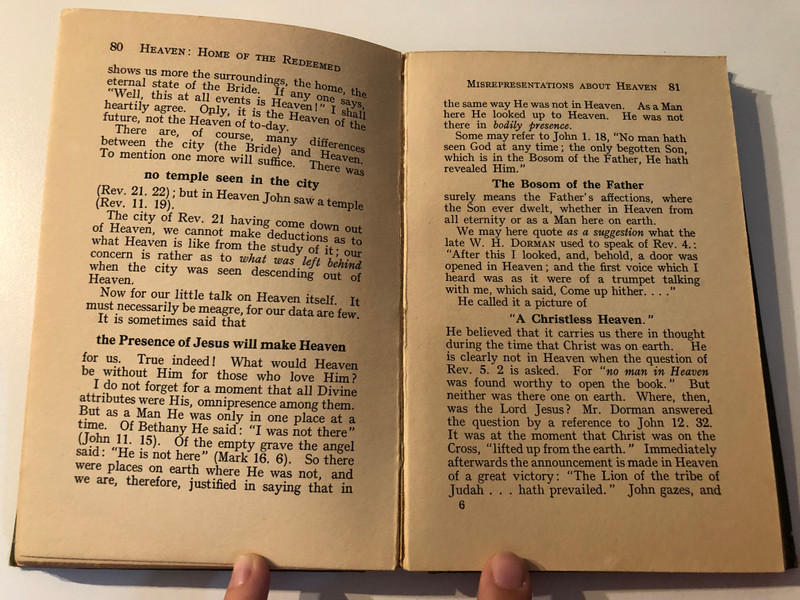 80 Heaven: Home of the Redeemed
shows us more the surroundings, the home, the
eternal state of the Bride. If any one says,
"Well, this at all events is Heaven!" I shall
heartily agree. Only, it is the Heaven of the
future, not the Heaven of to-day.
There are, of course, many differences
between the city (the Bride) and Heaven.
To mention one more will suffice. There was
no temple seen in the city
(Rev. 21. 22); but in Heaven John saw a temple
(Rev. 11. 19).
The city of Rev. 21 having come down out
of Heaven, we cannot make deductions as to
what Heaven is like from the study of it; our
concern is rather as to what was left behind
when the city was seen descending out of
Heaven.
Now for our little talk on Heaven itself. It
must necessarily be meagre, for our data are few.
It is sometimes said that
the Presence of Jesus will make Heaven
for us. True indeed! What would Heaven
be without Him for those who love Him?
I do not forget for a moment that all Divine
attributes were His, omnipresence among them.
But as a Man He was only in one place at a
time. Of Bethany He said: "I was not there"
(John 11. 15). Of the empty grave the angel
said: "He is not here" (Mark 16. 6). So there
were places on earth where He was not, and
we are, therefore, justified in saying that in
Misrepresentations about Heaven 81
the same way He was not in Heaven. As a Man
here He looked up to Heaven. He was not
there in bodily presence.
Some may refer to John 1. 18, "No man hath
seen God at any time; the only begotten Son,
which is in the Bosom of the Father, He hath
revealed Him."
The Bosom of the Father
surely means the Father's affections, where
the Son ever dwelt, whether in Heaven from
all eternity or as a Man here on earth.
We may here quote as a suggestion what the
late W. H. Dorman used to speak of Rev. 4.:
"After this I looked, and, behold, a door was
opened in Heaven; and the first voice which I
heard was as it were of a trumpet talking
with me, which said, Come up hither. . . ."
He called it a picture of
"A Christless Heaven."
He believed that it carries us there in thought
during the time that Christ was on earth. He
is clearly not in Heaven when the question of
Rev. 5. 2 is asked. For "no man in Heaven
was found worthy to open the book." But
neither was there one on earth. Where, then,
was the Lord Jesus? Mr. Dorman answered
the question by a reference to John 12. 32.
It was at the moment that Christ was on the
Cross, "lifted up from the earth." Immediately
afterwards the announcement is made in Heaven
of a great victory: "The Lion of the tribe of
Judah . . . hath prevailed." John gazes, and
6